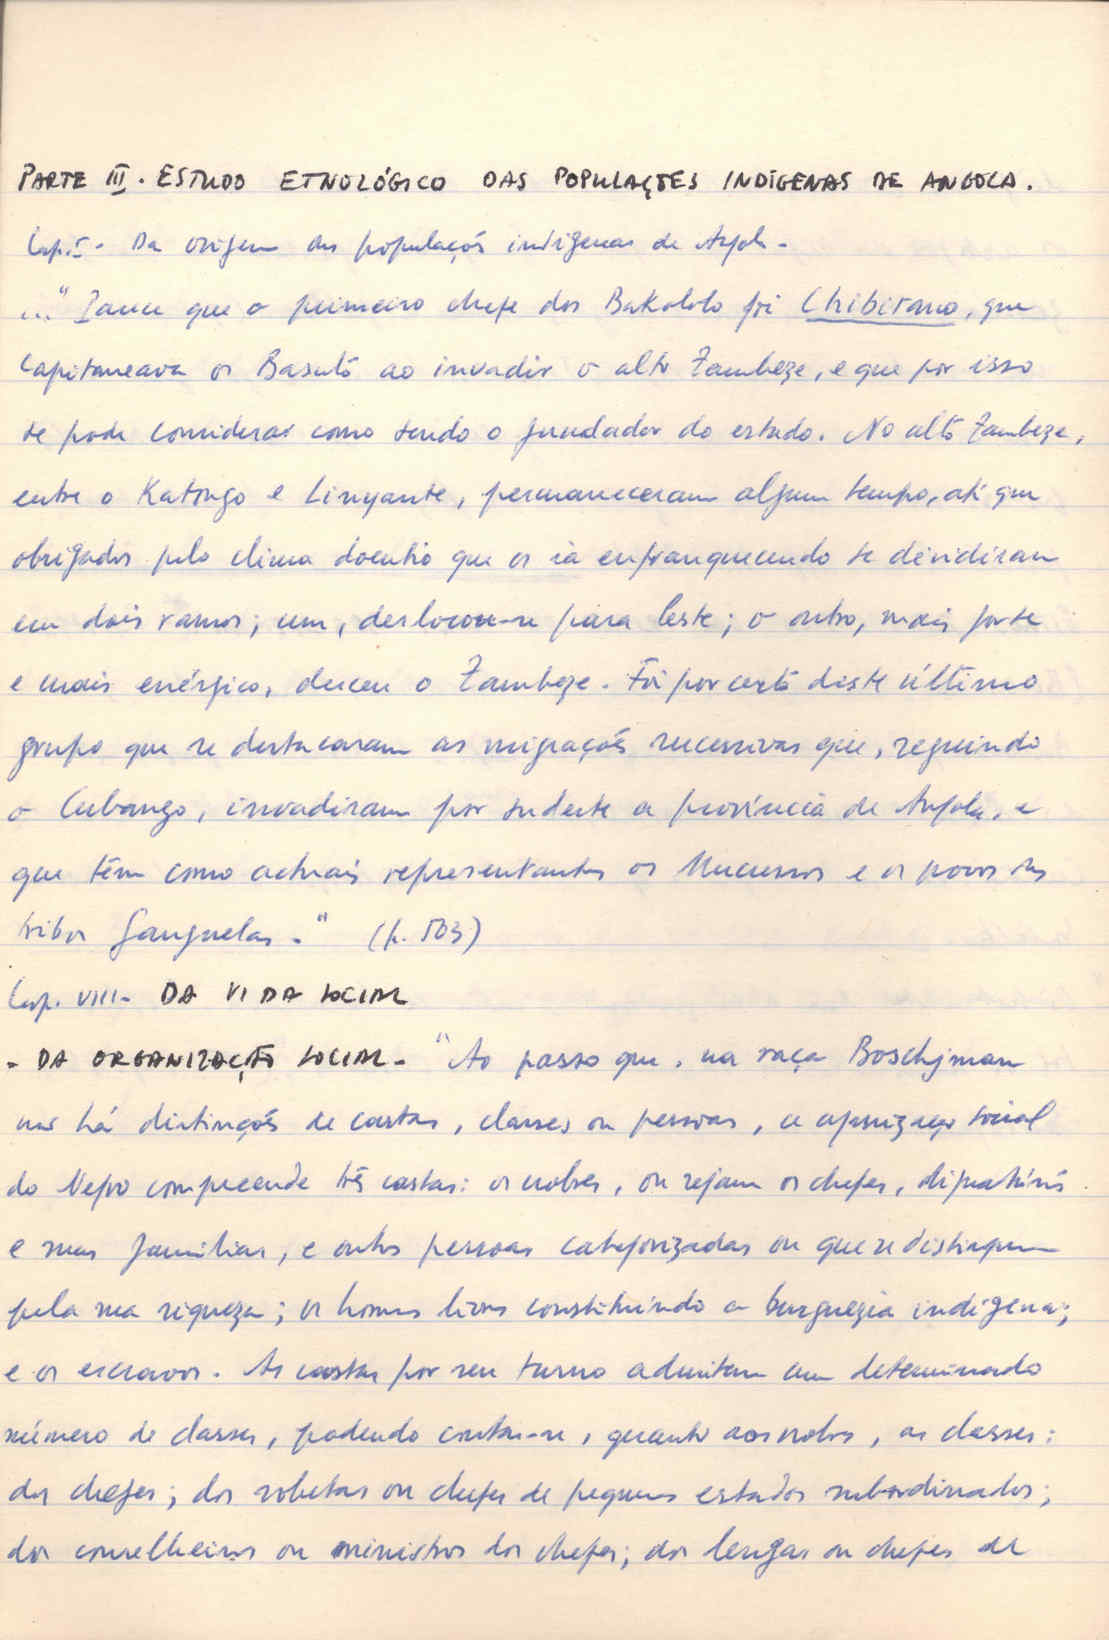 PARTE III. ESTUDO ETNOLÓGICO DAS POPULAÇÕES INDÍGENAS DE ANGOLA.
Cap. I - Da origem das populações indígenas de Angola -
..." Parece que o primeiro chefe dos Bakololo foi Chibitano, que
capitaneava os Basutô ao invadir o alto Zambeze, e que por isso
se pode considerar como sendo o fundador do estado. No alto Zambeze,
entre o Katongo e Linyante, permaneceram algum tempo, até que
obrigados pelo clima doentio que os ia enfranquecendo se dividiram
em dois ramos; um, deslocou-se para leste; o outro, mais forte
e mais enérgico, desceu o Zambeze. Foi por certo deste último
grupo que se destacaram as migrações sucessivas que, seguindo
o Cubango, invadiram por sudeste a província de Angola, e
que têm como actuais representantes os Mucussos e os povos das
tribos Ganguelas." (p. 503)
Cap. VIII - DA VIDA SOCIAL
- DA ORGANIZAÇÃO SOCIAL - "Ao passo que, na raça Boschjman
não há distinções de castas, classes ou pessoas, a organização social
do Negro compreende três castas: os nobres, ou sejam os chefes, dignatários
e seus familiares, e outras pessoas categorizadas ou que se distinguem
pela sua riqueza; os homens livres constituindo a burguezia indígena;
e os escravos. As castas por seu turno admitem um determinado
número de classes, podendo contar-se, quanto aos nobres, as classes:
dos chefes; dos sobetas ou chefes de pequenos estados subordinados;
dos conselheiros ou ministros dos chefes; dos lengas ou chefes de